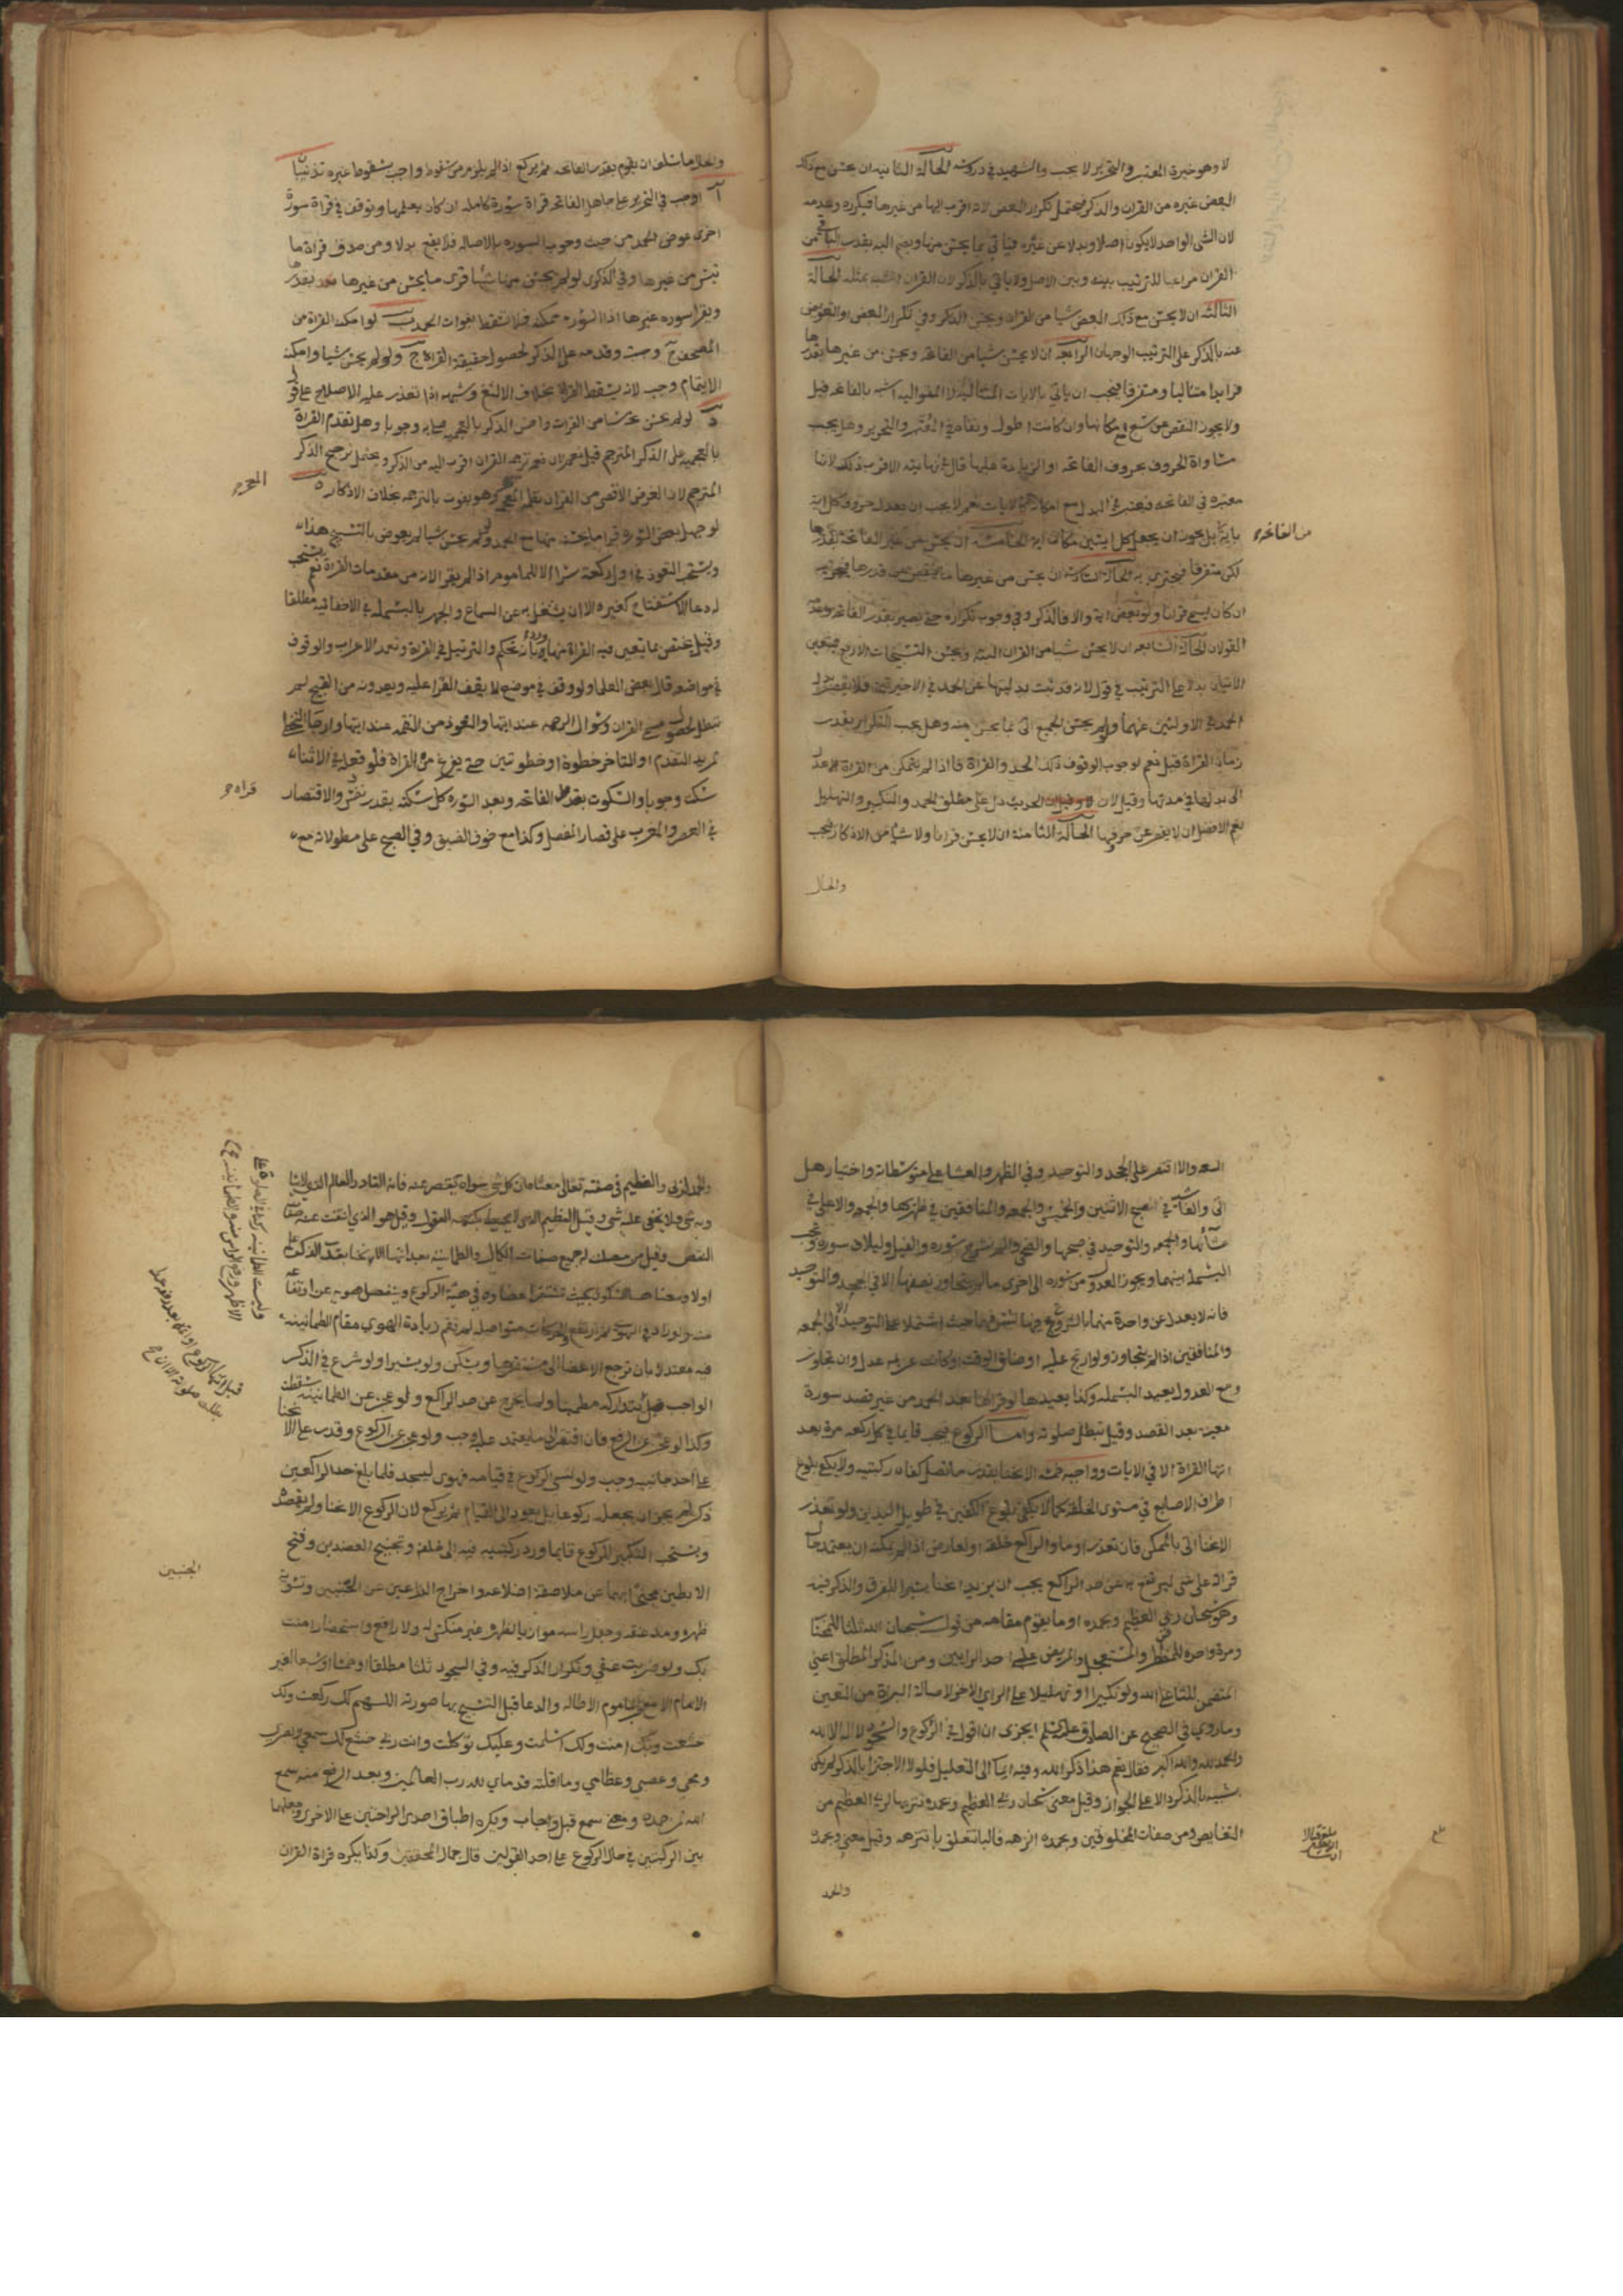 لا وهو خيرة المعتبر والتحرير لا يجب والشهيد في دروسه الحالة الثانية ان يحسن مع ذلك
البعض غيره من القران والذكر فيحتمل تكرار البعض لانه اقرب اليها من غيرها فيكرره وعدمه
لان الشي الواحد لا يكون اصلا وبدلا عن غيره فياتي بما يحسن منها ويضم اليه بقدر الباقي من
القران مراعيا للترتيب بينه وبين الاصل ولا ياتي بالذكر لان القران اشبه بمثله الحالة
الثالثة ان لا يحسن مع ذلك البعض شيا من القران ويحسن الذكر وفي تكرار البعض او التعويض
عنه بالذكر على الترتيب الوجهان الرابعه ان لا يحسن شيا من الفاتحه ويحسن من غيرها بقدرها
قرانا متتاليا ومتفرقا فيجب ان ياتي بالايات المتتالية لان المتواليه اشبه بالفاتحه قيل
ولا يجوز النقص عن سبع مع امكانها وان كانت اطول ونفاه في المعتبر والتحرير وهل يجب
مساواة الحروف بحروف الفاتحه او الزيادة عليها قال في نهايته الاقرب ذلك لانها
معتبره في الفاتحه فيعتبر في البدل مع امكانه كالايات نعم لا يجب ان يعدل حروف كل اية
باية بل يجوز ان يجعل كل ايتين مكان اية الخامسه ان يحسن من غير الفاتحة بقدرها
من الفاتحه
لكن متفرقا فيجتزي به الحالة السادسة ان يحسن من غيرها ما ينقص عن قدرها فيجزيه
ان كان يسمى قرانا ولو بعض اية والا فالذكر وفي وجوب تكراره حتى يصير بقدر الفاتحه وعدمه
القولان الحالة السابعه ان لا يحسن شيا من القران البته ويحسن التسبيحات الاربع فيتعين
الاتيان بدلا على الترتيب في قول لانه قد ثبت بدليتها عن الحمد في الاخيرتين فلا يقصر بدل
الحمد في الاولتين عنهما ولو لم يحسن الجميع اتى بما يحسن منه وهل يجب التكرار بقدر
زمان القراة قيل نعم لوجوب الوقوف ذلك الحد والقراة فاذا لم يتمكن من القراة عدل
الى بدلها في مدتها وقيل لان الحديث دل على مطلق الحمد والتكبير والتهليل
نعم الافضل ان لا يقصر عن حروفها الحالة الثامنة ان لا يحسن قرانا ولا شيا من الاذكار فيجب
والحال
والحال ما سلف ان يقوم بقدر الفاتحه ثم يركع اذ لا يلزم من سقوط واجب سقوط غيره تذنيبا
آ اوجب في التحرير على جاهل الفاتحه قراة سورة كامله ان كان يعلمها وتوقف في قراة سورة
اخرى عوض الحمد من حيث وجوب السورة بالاصاله فلا يقع بدلا ومن صدق قراة ما
تيسر من غيرها وفي الذكرى لو لم يحسن منها شيا قرى ما يحسن من غيرها بقدرها
ويقرا سوره غيرها اذ السوره ممكنه فلا تسقط بفوات الحمد ب لو امكنه القراة من
المصحف وجبت وقدمه على الذكر لحصول حقيقة القراة ج ولو لم يحسن شيا وامكنه
الايتمام وجب لانه يسقط القراة بخلاف الالثغ وشبهه اذا تعذر عليه الاصلاح على قول
د لو لم يحسن شيا من القران واحسن الذكر بالعجميه اتى به وجوبا وهل تقدم القراة
بالعجميه على الذكر المترجم قيل نعم لان ترجمة القران اقرب اليه من الذكر ويحتمل ترجيح الذكر
المترجم لان الغرض الاقصى من القران نظمه المعجز وهو يفوت بالترجمه بخلاف الاذكار ه
المعجز
لو جهل بعض السورة قرا ما يحسنه منها مع الحمد ولو لم يحسن شيا لم يعوض بالتسبيح هذا
ويستحب التعوذ في اول ركعة سرا الا للماموم اذا لم يقرا لانه من مقدمات القراة نعم يستحب
له دعا الاستفتاح كغيره الا ان يشغل به عن السماع والجهر بالبسمله في الاخفاتيه مطلقا
وقيل يختص بما يتعين فيه القراة والترتيل في القراة وتعمد الاعراب والوقوف
في مواضعه قال بعض العلما ولو وقف في موضع لا يقف القرا عليه ويعدونه من القبيح لم
تبطل لحصول مسمى القران وسؤال الرحمه عند ايتها والتعوذ من النقمه عند ايتها وارخا التخطي
لمريد التقدم او للتاخر خطوة او خطوتين حتى يفرغ من القراة فلو فعله في الاثناء
سكت وجوبا والسكوت بعد الفاتحه وبعد السورة كل سكتة بقدر نفس والاقتصار
قراه
في العصر والمغرب على قصار المفصل وكذا مع خوف الضيق وفي الصبح على مطولاته مع
السعه والا اقتصر على الجحد والتوحيد وفي الظهر والعشا على متوسطاته واختيار هل
اتى والغاشية في الصبح الاثنين والخميس والجمعه والمنافقين في ظهريها والجمعه والاعلى في
عشائها والجمعه والتوحيد في صبحها والضحى والم نشرح سوره والفيل ولايلاف سوره وتجب
البسملة بينهما ويجوز العدول من سوره الى اخرى ما لم يتجاوز نصفها الا في الجحد والتوحيد
فانه لا يعدل عن واحدة منهما بالشروع فيها الا الى الجمعه
والمنافقين اذا لم يتجاوز ولو ارتج عليه او ضاق الوقت او كانت عزيمه عدل وان تجاوز
ومع العدول يعيد البسمله وكذا يعيدها لو قراها بعد الحمد من غير قصد سورة
معينه بعد القصد وقيل تبطل صلوته واما الركوع فيجب قايما في كل ركعه مرة بعد
انتها القراة الا في الايات وواجبه خمسه الانحنا بقدر ما تصل كفاه ركبتيه ولا يكفي بلوغ
اطراف الاصابع في مستوى الخلقه كما لا يكفي بلوغ الكفين في طويل اليدين ولو تعذر
الانحنا اتى بالممكن فان تعذر اوما والراكع خلقة او لعارض اذا لم يمكنه ان يعتمد حال
قراته على شي ليرتفع به عن حد الراكع يجب ان يزيد انحنا يسيرا للفرق والذكر فيه
وهو سبحان ربي العظيم وبحمده او ما يقوم مقامه من قول سبحان الله ثلثا للمختار
ومرة واحدة للمضطر والمستعجل والمريض على احد الرايين ومن الذكر المطلق اعني
المتضمن للثنا على الله ولو تكبيرا او تهليلا على الراي الاخر لاصالة البراة من التعين
وما روي في الصحيح عن الصادق عليه السلم ايجزي ان اقول في الركوع والسجود لا اله الا الله
والحمد لله والله اكبر فقال نعم هذا ذكر الله وفيه ايما الى التعليل فلولا الاجتزا بالذكر لم يكن
شبيه بالذكر دالا على الجواز وقيل معنى سبحان ربي العظيم وبحمده تنزيها لربي العظيم من
النقايص ومن صفات المخلوقين وبحمده انزهه فالبا تتعلق بانزهه وقيل معنى وبحمده
والحمد
والحمد لربي والعظيم في صفته تعالى معناه ان كل شي سواه يقصر عنه فانه القادر العالم الذي لا يساويه
شي ولا يخفى عليه شي وقيل العظيم الذي لا يحيط بكنهه العقول وقيل هو الذي انتفت عنه صفات
النقص وقيل من حصلت له جميع صفات الكمال والطمانينه بعد انتها الانحنا بقدر الذكر
اولا ومعناها السكون بحيث تستقر اعضاوه في هيئة الركوع وينفصل هويه عن ارتفاعه
منه ولو زاد في الهوي ثم ارتفع والحركات متواصله لم تقم زيادة الهوي مقام الطمانينه
فيه معتدلا بان ترجع الاعضا الى مستقرها ويسكن ولو يسيرا ولو شرع في الذكر
الواجب قبل يتداركه مطمينا ولما يخرج عن حد الراكع ولو عجز عن الطمانينه سقطت
وكذا لو عجز عن الرفع فان افتقر الى ما يعتمد عليه وجب ولو عجز عن الركوع وقدر على الانحنا
على احد جانبيه وجب ولو نسي الركوع في قيامه فهوى ليسجد فلما بلغ حد الراكعين
ذكر لم يجز ان يجعله ركوعا بل يعود الى القيام ثم يركع لان الركوع الانحنا ولم يقصده
ويستحب التكبير للركوع قايما ورد ركبتيه فيه الى خلفه وتجنيح العضدين وفتح
الابطين مجنحا بهما عن ملاصقة اضلاعه واخراج الذراعين عن الجنبين وتسوية
الجنبين
ظهره ومد عنقه وجعل راسه موازيا لظهره غير منكس له ولا رافع واستحضار امنت
بك ولو ضربت عنقي وتكرار الذكر فيه وفي السجود ثلثا مطلقا وخمسا وسبعا لغير
الامام الا مع حب الماموم الاطاله والدعا قبل التسبيح بما صورته اللهم لك ركعت ولك
خشعت وبك امنت ولك اسلمت وعليك توكلت وانت ربي خشع لك سمعي وبصري
ومخي وعصبي وعظامي وما اقلته قدماي لله رب العالمين وبعد الرفع منه سمع
الله لمن حمده ومعنى سمع قبل واجاب ويكره اطباق احدى الراحتين على الاخرى وجعلهما
بين الركبتين في حال الركوع على احد القولين قال جمال المحققين وكذا يكره قراة القران